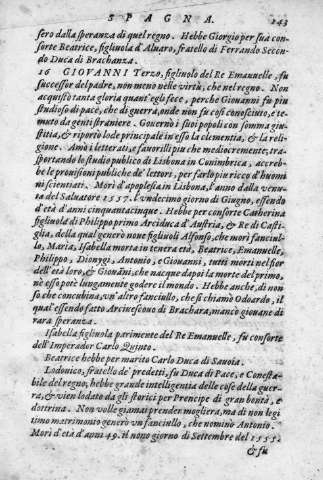 SPAGNA. 143
sero dalla speranza di quel regno. Hebbe Giorgio per sua con
sorte Beatrice, figliuola d'Aluaro, fratello di Ferrando Secon
do Duca di Brachanza.
16 GIOVANNI Terzo, figliuolo del Re Emanuelle, fu
successor del padre, non meno nelle virtù, che nel regno. Non
acquistò tanta gloria quant'egli fece, perche Giouanni fu piu
studioso di pace, che di guerra, onde non fu cosi conosciuto, e te
muto da genti straniere. Gouernò i suoi popoli con somma giu
stitia, & riportò lode principale in esso la clementia, & la reli
gione. Amò i letterati, e fauorilli piu che mediocremente, tra
sportando lo studio publico di Lisbona in Conimbrica, accreb-
be le prouisioni publiche de' lettori, per farlo piu ricco d'huomi
ni scientiati. Morì d'apoplesia in Lisbona, l'anno dalla venu-
ta del Saluatore 1557. l'vndecimo giorno di Giugno, essendo
d'età d'anni cinquantacinque. Hebbe per consorte Catherina
figliuola di Philippo primo Arciduca d'Austria, & Re di Casti-
glia, della qual generò noue figliuoli Alfonso, che morì fanciul-
lo, Maria, Isabella morta in tenera età, Beatrice, Emanuelle,
Philippo, Dionygi, Antonio, e Giouanni, tutti morti nel fior
dell'età loro, & Giouāni, che nacque dapoi la morte del primo,
nè esso potè lungamente godere il mondo. Hebbe anche, di non
so che concubina, vn'altro fanciullo, che si chiamò Odoardo, il
qual'essendo fatto Arciuescouo di Brachara, mancò giouane di
rara speranza.
Isabella figliuola parimente del Re Emanuelle, fu consorte
dell'Imperador Carlo Quinto.
Beatrice hebbe per marito Carlo Duca di Sauoia.
Lodouico, fratello de' predetti, fu Duca di Pace, e Conesta-
bile del regno, hebbe grande intelligentia delle cose della guer-
ra, & vien lodato da gli storici per Prencipe di gran bontà, e
dottrina. Non volle giamai prender mogliera, ma di non legi
timo matrimonio generò vn fanciullo, che nominò Antonio.
Morì d'età d'anni 49. il nono giorno di Settembre del 1555.
& fu